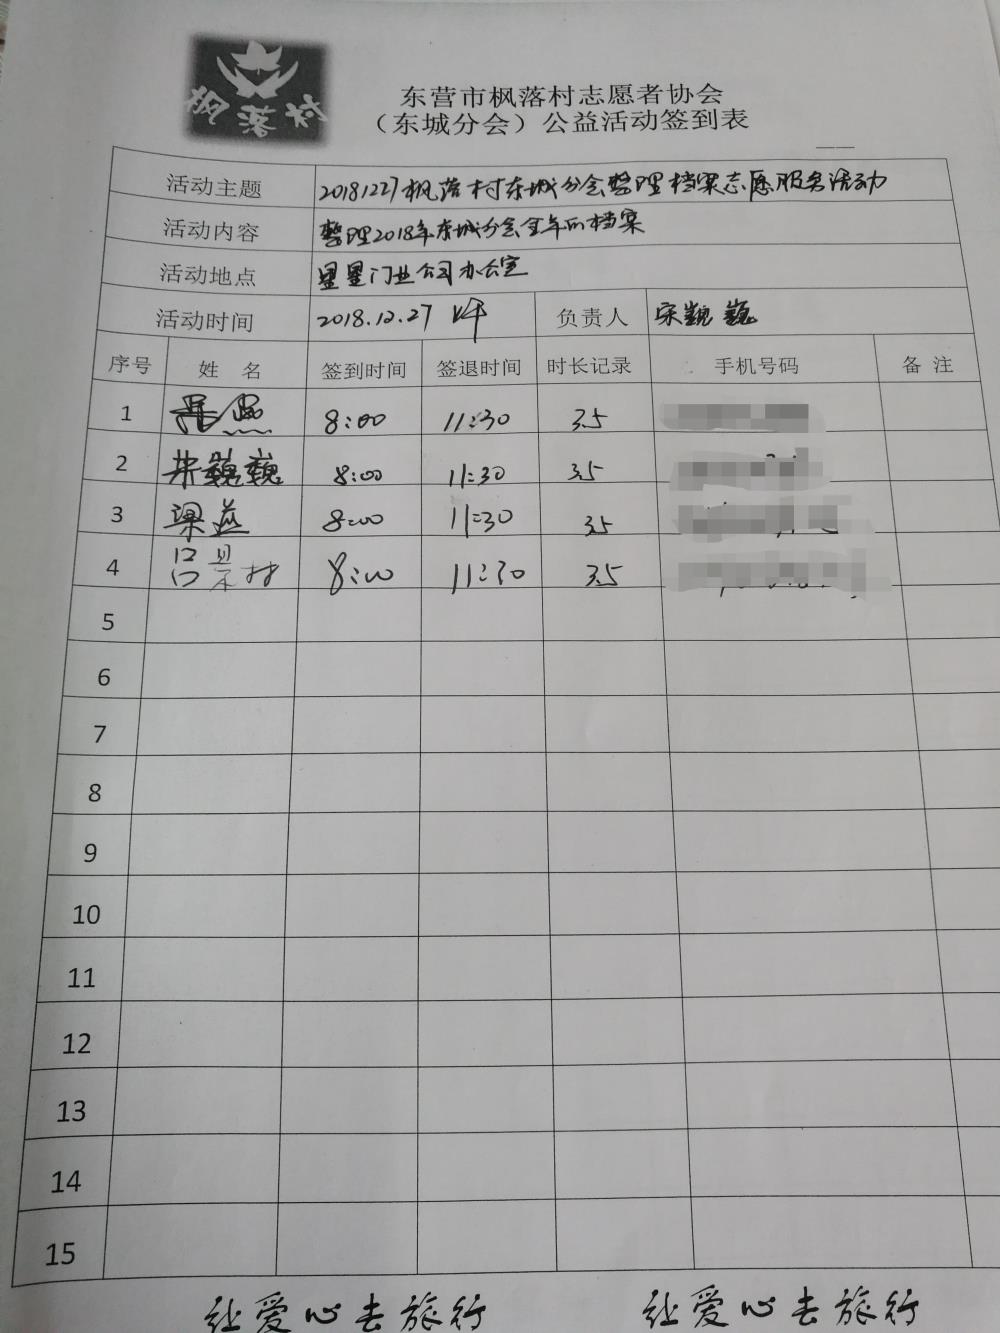 枫落村
东营市枫落村志愿者协会
（东城分会）公益活动签到表
活动主题 20181227枫落村东城分会整理档案志愿服务活动
活动内容 整理2018年东城分会全年的档案
活动地点 星星门业公司办公室
活动时间 2018.12.27 上午 负责人 宋巍巍
序号 姓 名 签到时间 签退时间 时长记录 手机号码 备 注
1 8:00 11:30 3.5
2 宋巍巍 8:00 11:30 3.5
3 梁燕 8:00 11:30 3.5
4 吕景村 8:00 11:30 3.5
5
6
7
8
9
10
11
12
13
14
15
让爱心去旅行 让爱心去旅行